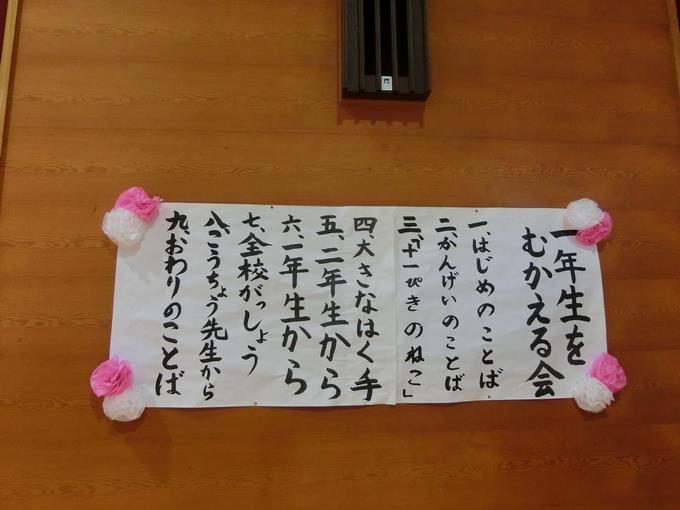 一年生を
むかえる会
一、はじめのことば
二、かんげいのことば
三、「十一ぴきのねこ」
四、大きなはく手
五、二年生から
六、一年生から
七、全校がっしょう
八、こうちょう先生から
九、おわりのことば